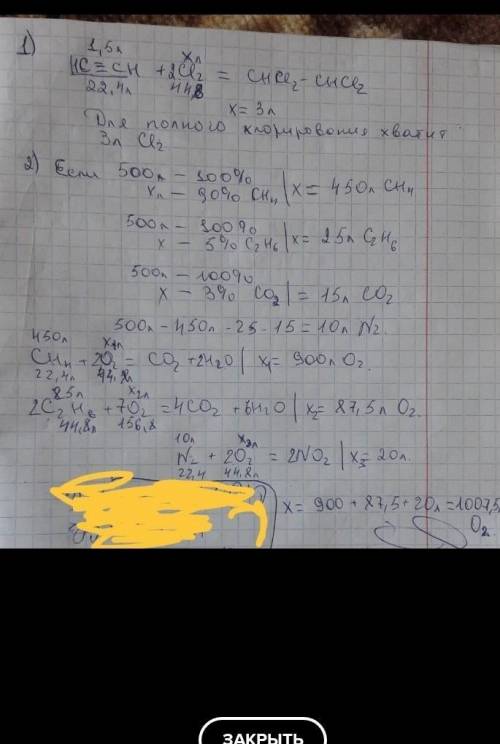 1)
1,5л xл
HC≡CH + 2Cl2 = CHCl2-CHCl2
22,4л 44,8
x = 3л
Для полного хлорирования хватит
3л Cl2
2) Если 500л - 100%
xл - 90% CH4 | x = 450л CH4
500л - 100%
x - 5% C2H6 | x = 25л C2H6
500л - 100%
x - 3% CO2 | = 15л CO2
500л - 450л - 25 - 15 = 10л N2
450л x1л
CH4 + 2O2 = CO2 + 2H2O | x1 = 900л O2.
22,4л 44,8л
25л x2л
2C2H6 + 7O2 = 4CO2 + 6H2O | x2 = 87,5л O2.
44,8л 156,8
10л x3л
N2 + 2O2 = 2NO2 | x3 = 20л.
22,4 44,8л
x = 900 + 87,5 + 20л = 1007,5
O2
ЗАКРЫТЬ